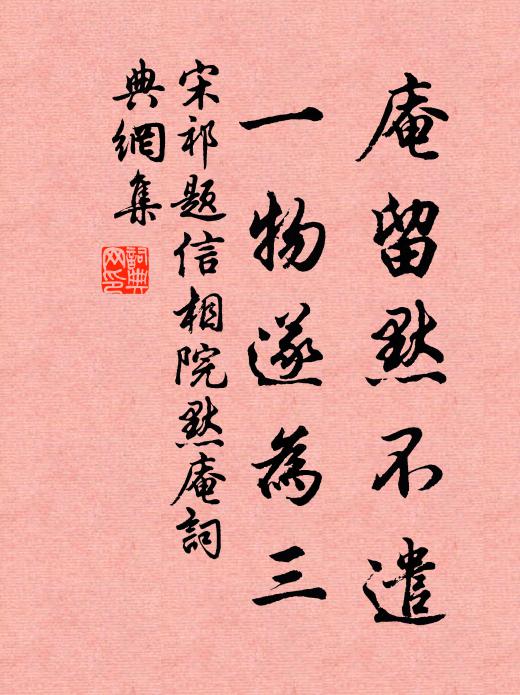 庵留默不遣
一物遂為三
宋祁題信相院默庵詞
典網集
詞典
网印